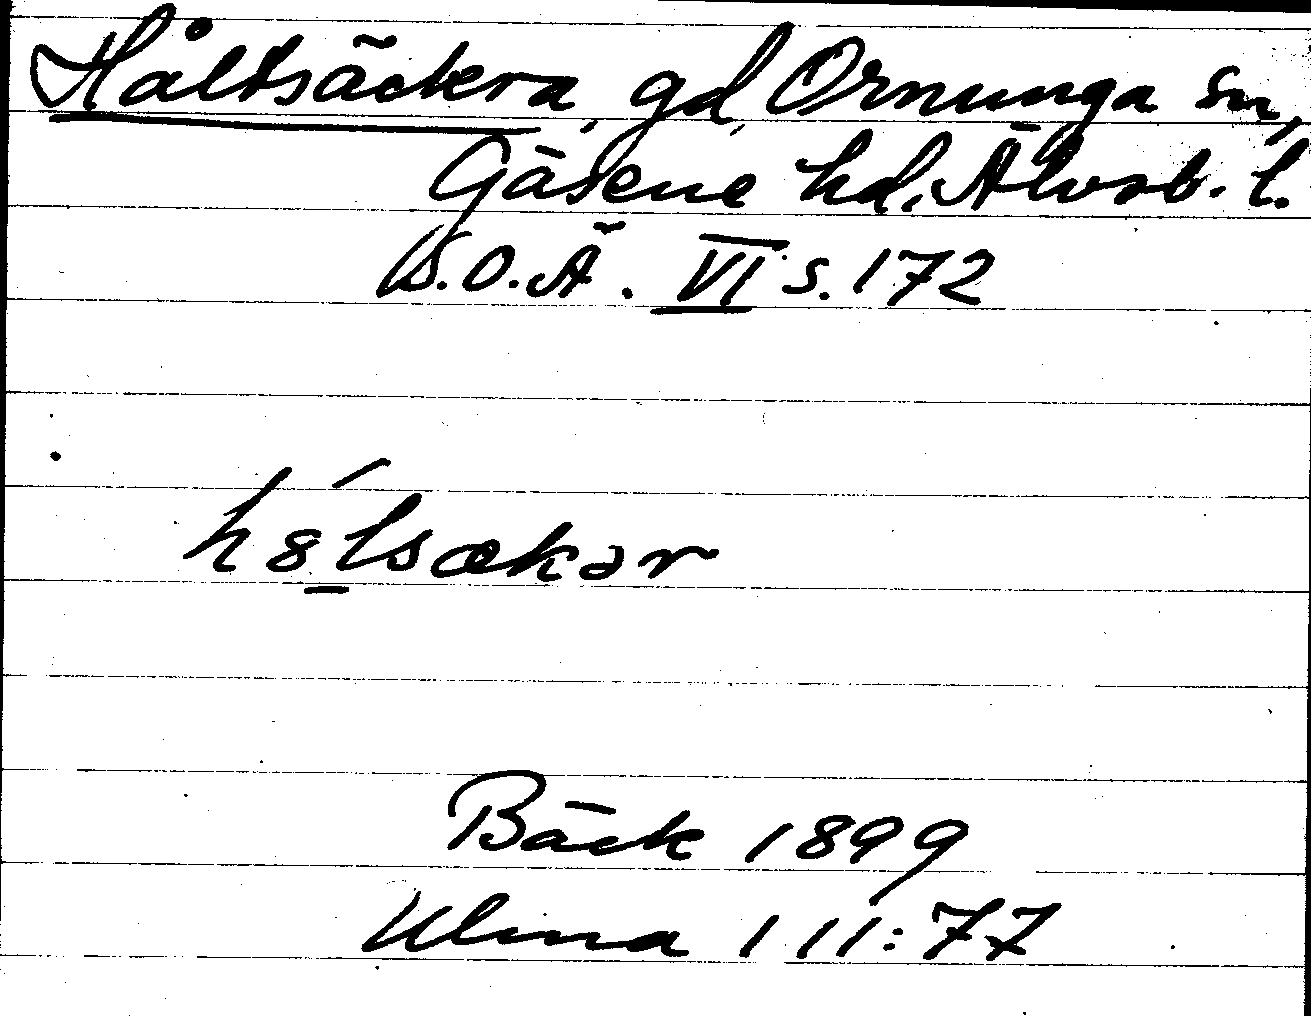 Håltsäckra, gd, Ornunga sn,
Gäsene hd, Älvsb. l.
S.O.Ä. VI s. 172
h8́lsækər
Bäck 1899
Ulma 111:77